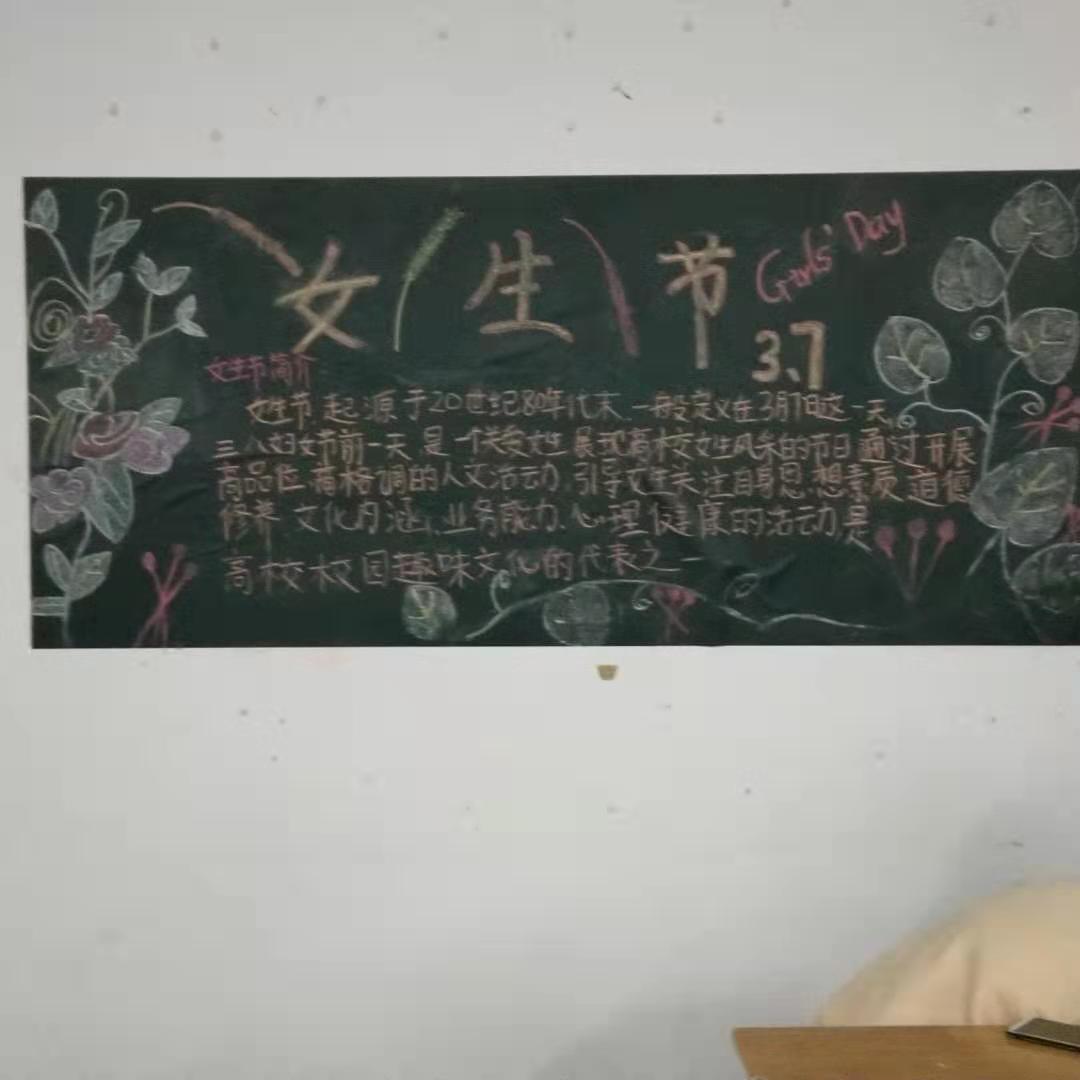 女生节
Girls' Day
3、7
女生节简介
女生节起源于20世纪80年代末、一般定义在3月7日这一天、
三八妇女节前一天、是一个关爱女性、展现高校女生风采的节日通过开展
高品位、高格调的人文活动、引导女生关注自身思想素质、道德
修养、文化内涵、业务能力、心理健康的活动是
高校校园趣味文化的代表之一